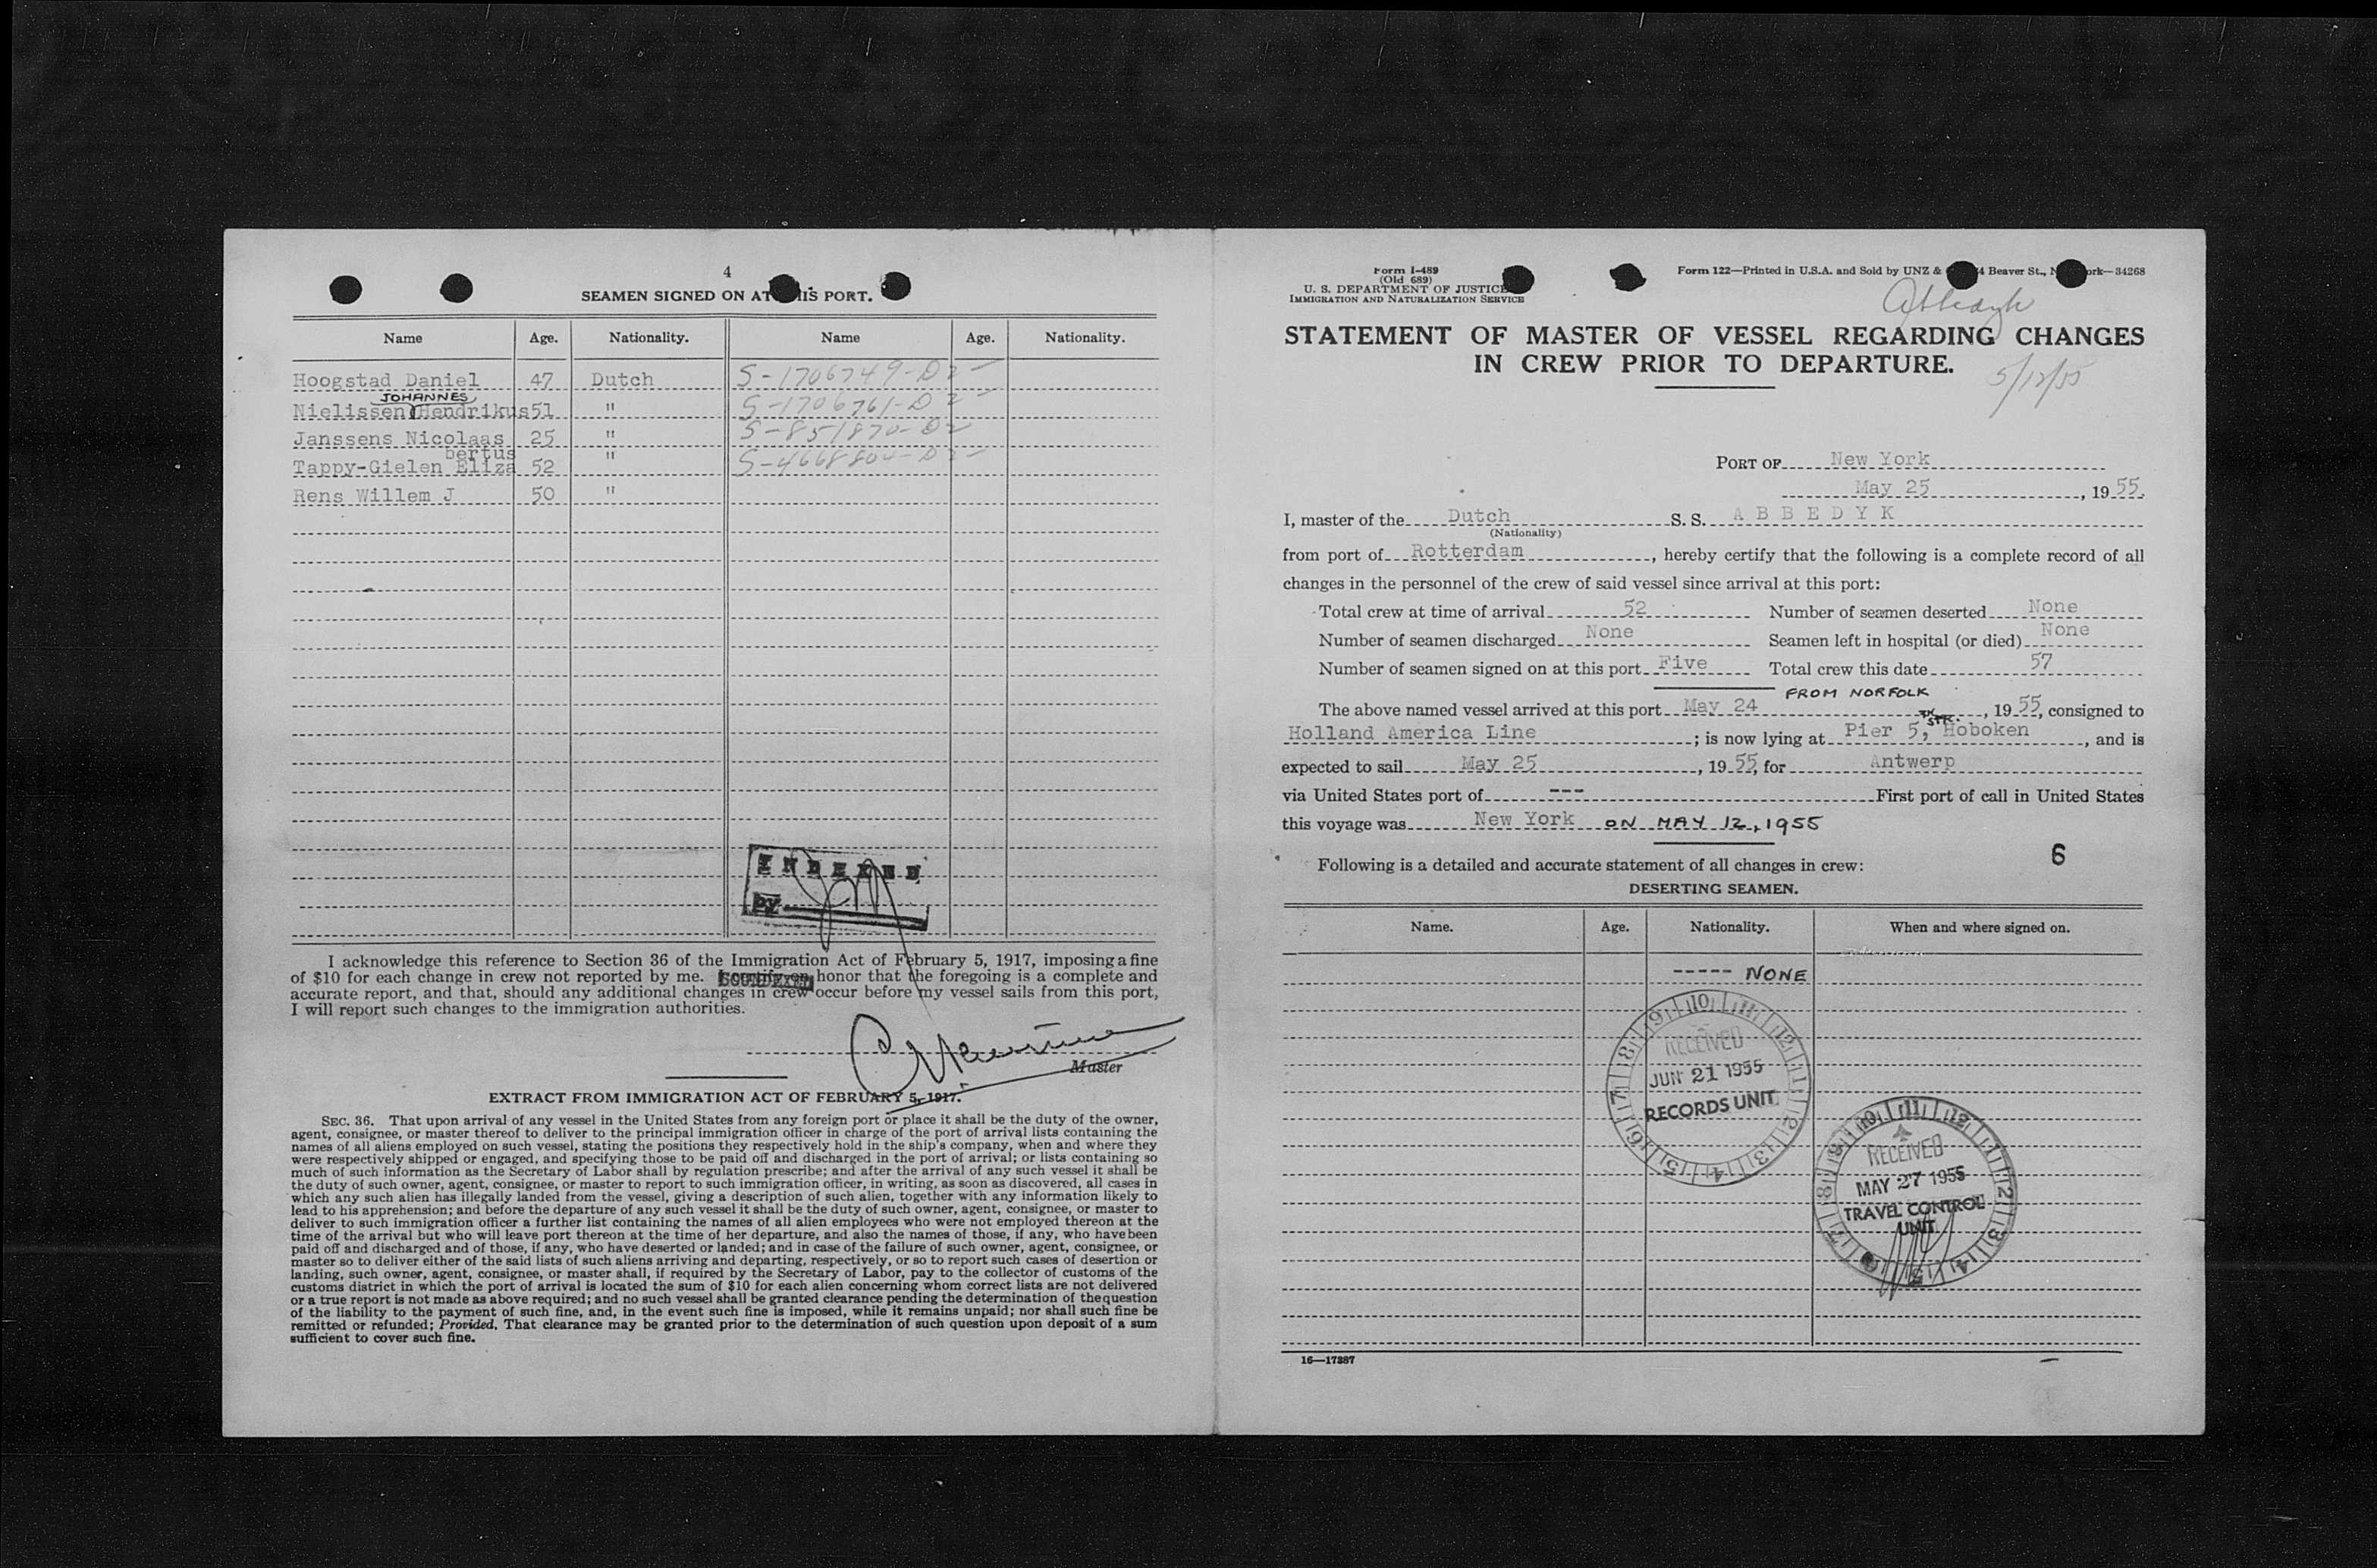 4
SEAMEN SIGNED ON AT THIS PORT.
Name Age. Nationality. Name Age. Nationality.
Hoogstad Daniel 47 Dutch S-1706749-D2
JOHANNES
Nielissen Hendrikus 51 " S-1706761-D2
Janssens Nicolaas 25 " S-851870-D2
bertus
Tappy-Gielen Eliza 52 " S-4668804-D2
Rens Willem J 50 "
INDEXED
BY
I acknowledge this reference to Section 36 of the Immigration Act of February 5, 1917, imposing a fine
of $10 for each change in crew not reported by me. I certify on honor that the foregoing is a complete and
accurate report, and that, should any additional changes in crew occur before my vessel sails from this port,
I will report such changes to the immigration authorities.
Master
EXTRACT FROM IMMIGRATION ACT OF FEBRUARY 5, 1917.
SEC. 36. That upon arrival of any vessel in the United States from any foreign port or place it shall be the duty of the owner,
agent, consignee, or master thereof to deliver to the principal immigration officer in charge of the port of arrival lists containing the
names of all aliens employed on such vessel, stating the positions they respectively hold in the ship's company, when and where they
were respectively shipped or engaged, and specifying those to be paid off and discharged in the port of arrival; or lists containing so
much of such information as the Secretary of Labor shall by regulation prescribe; and after the arrival of any such vessel it shall be
the duty of such owner, agent, consignee, or master to report to such immigration officer, in writing, as soon as discovered, all cases in
which any such alien has illegally landed from the vessel, giving a description of such alien, together with any information likely to
lead to his apprehension; and before the departure of any such vessel it shall be the duty of such owner, agent, consignee, or master to
deliver to such immigration officer a further list containing the names of all alien employees who were not employed thereon at the
time of the arrival but who will leave port thereon at the time of her departure, and also the names of those, if any, who have been
paid off and discharged and of those, if any, who have deserted or landed; and in case of the failure of such owner, agent, consignee, or
master so to deliver either of the said lists of such aliens arriving and departing, respectively, or so to report such cases of desertion or
landing, such owner, agent, consignee, or master shall, if required by the Secretary of Labor, pay to the collector of customs of the
customs district in which the port of arrival is located the sum of $10 for each alien concerning whom correct lists are not delivered
or a true report is not made as above required; and no such vessel shall be granted clearance pending the determination of the question
of the liability to the payment of such fine, and, in the event such fine is imposed, while it remains unpaid; nor shall such fine be
remitted or refunded; Provided, That clearance may be granted prior to the determination of such question upon deposit of a sum
sufficient to cover such fine.
Form I-489
(Old 689)
U. S. DEPARTMENT OF JUSTICE
IMMIGRATION AND NATURALIZATION SERVICE
Form 122—Printed in U.S.A. and Sold by UNZ & 4 Beaver St., N ork—34268
Abbedyk
STATEMENT OF MASTER OF VESSEL REGARDING CHANGES
IN CREW PRIOR TO DEPARTURE.
5/12/55
PORT OF New York
May 25, 1955.
I, master of the Dutch S. S. ABBEDYK
(Nationality)
from port of Rotterdam, hereby certify that the following is a complete record of all
changes in the personnel of the crew of said vessel since arrival at this port:
Total crew at time of arrival 52 Number of seamen deserted None
Number of seamen discharged None Seamen left in hospital (or died) None
Number of seamen signed on at this port Five Total crew this date 57
FROM NORFOLK
The above named vessel arrived at this port May 24, 1955, consigned to
STR.
Holland America Line; is now lying at Pier 5, Hoboken, and is
expected to sail May 25, 1955, for Antwerp
via United States port of --- First port of call in United States
this voyage was New York ON MAY 12, 1955
6
Following is a detailed and accurate statement of all changes in crew:
DESERTING SEAMEN.
Name. Age. Nationality. When and where signed on.
----- NONE
RECEIVED
JUN 21 1955
RECORDS UNIT
RECEIVED
MAY 27 1955
TRAVEL CONTROL
UNIT
16—17387